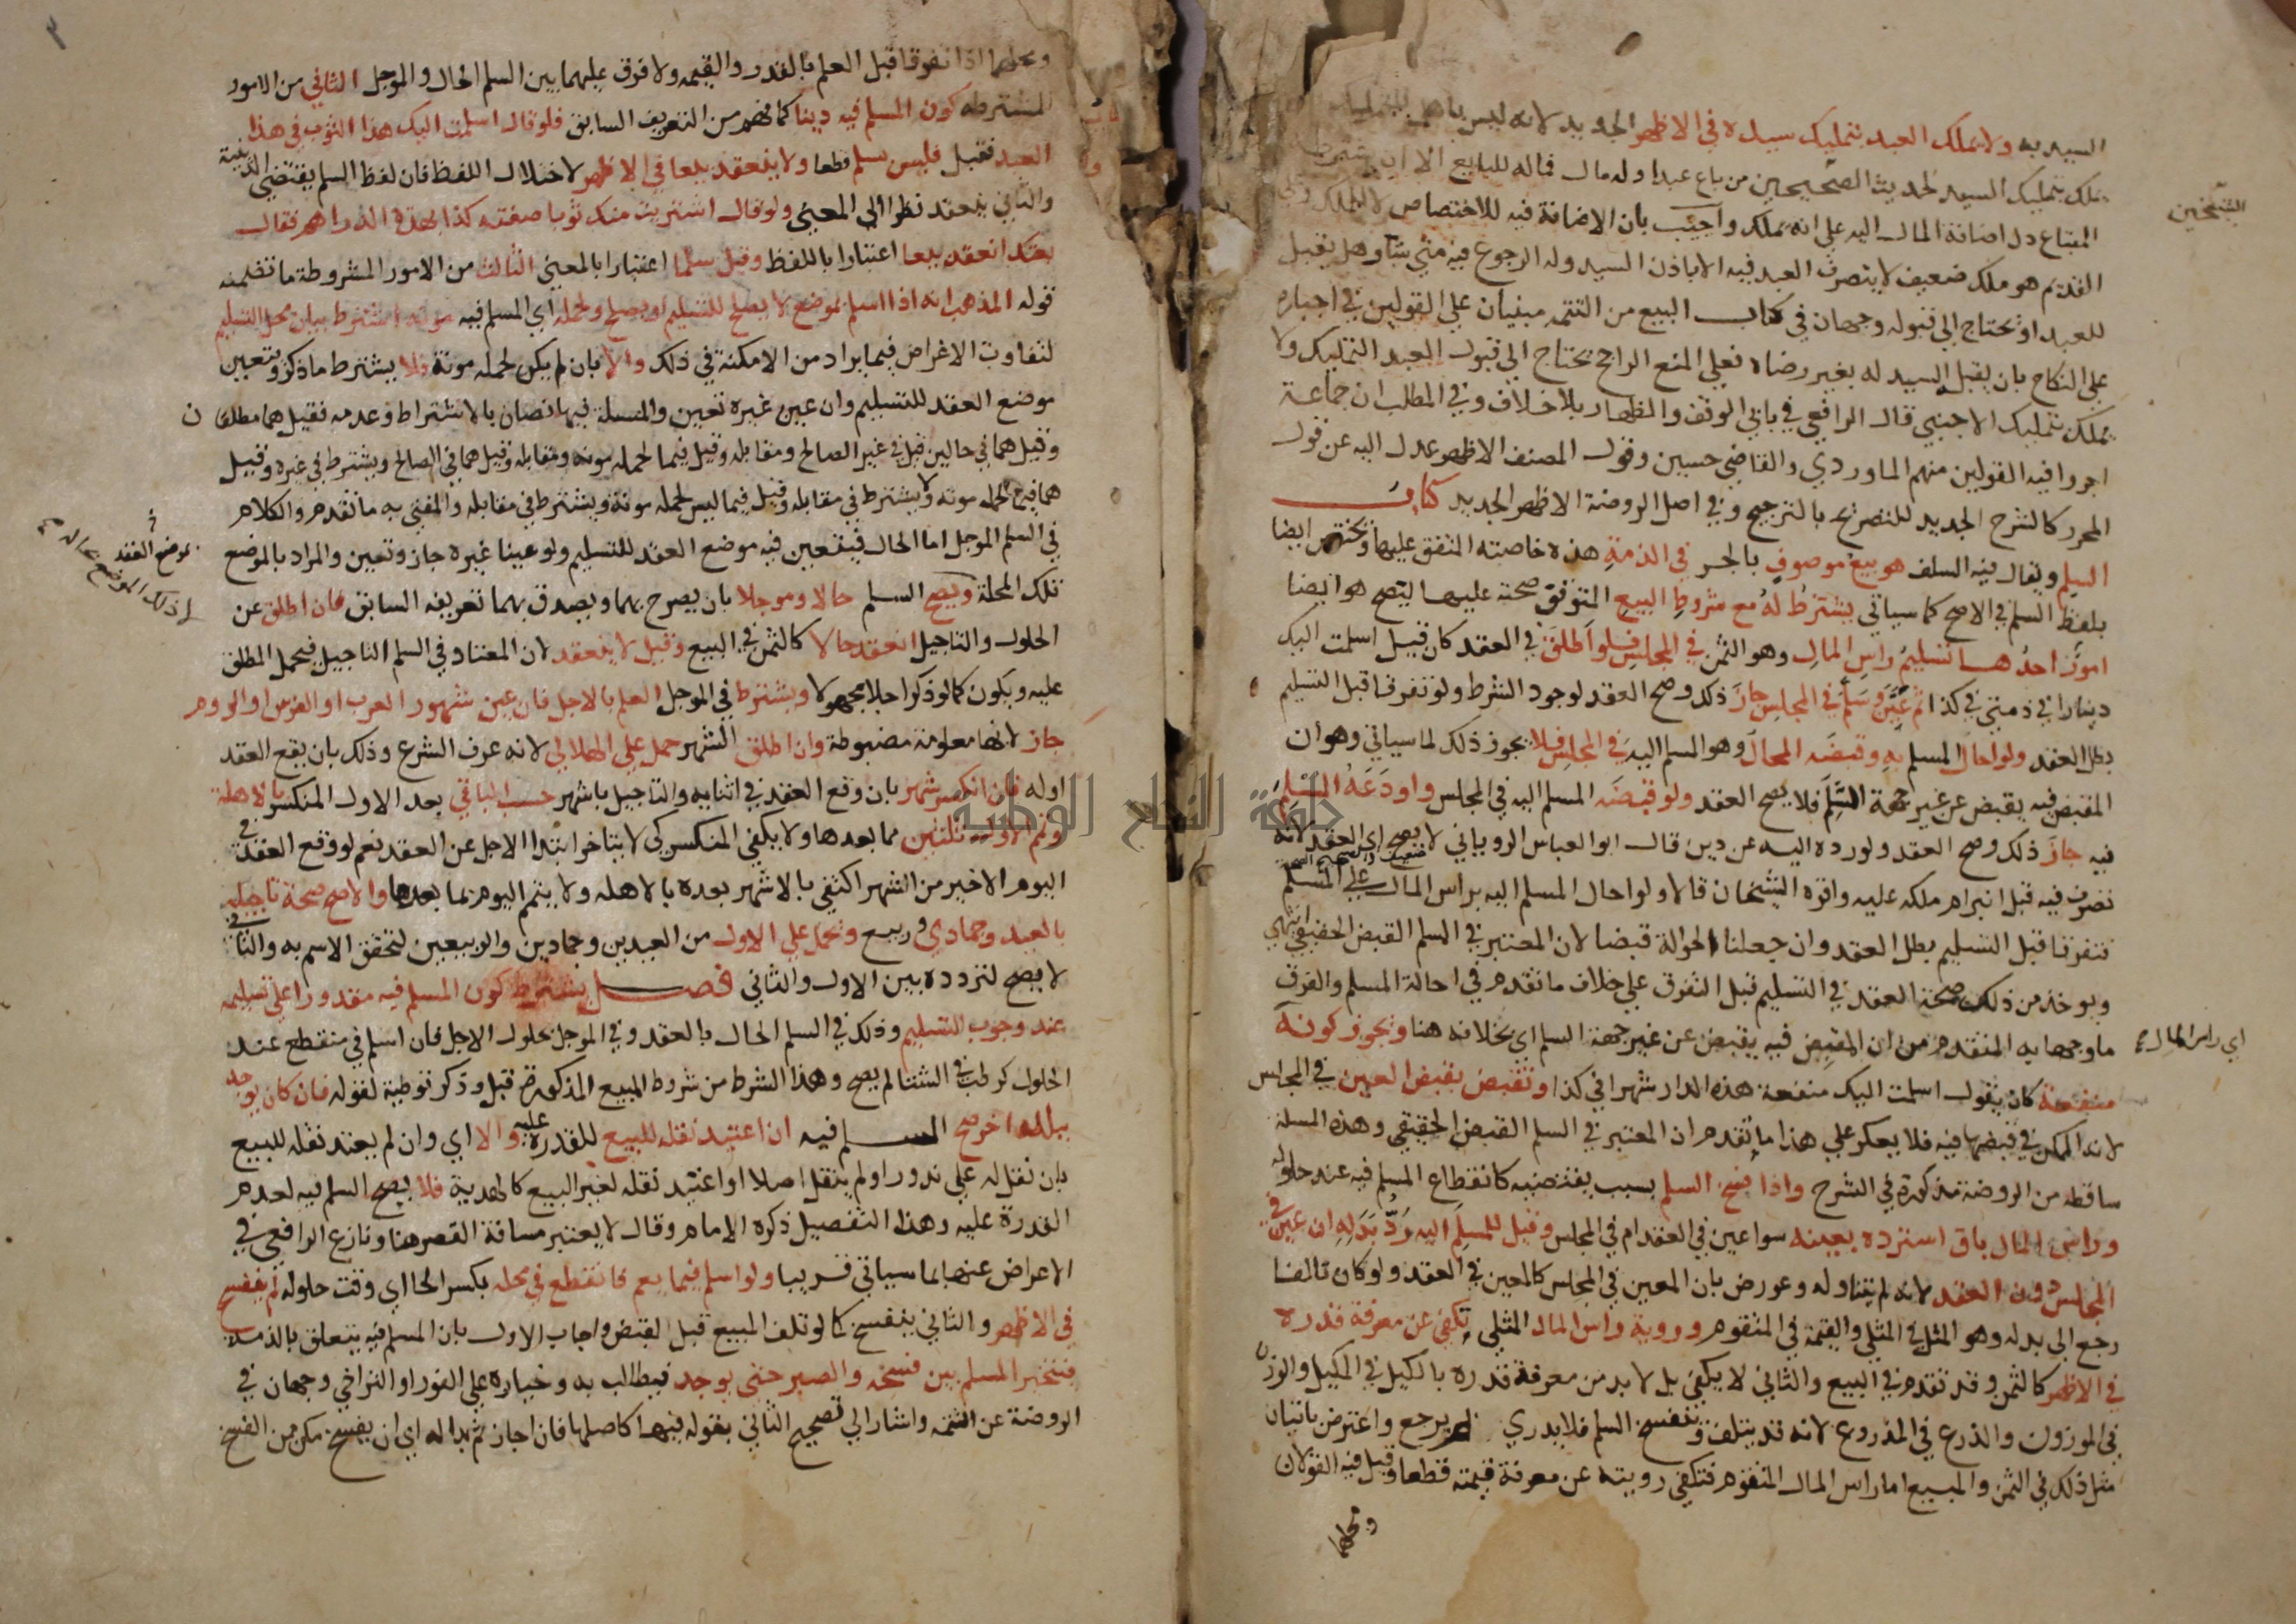 السيد به ولا يملك العبد بتمليك سيده في الاظهر الجديد لانه ليس باهل للتمليك
يملك بتمليك السيد لحديث الصحيحين من باع عبدا وله مال فماله للبايع الا ان يشترط
الشيخين
المبتاع دل اضافة المال اليه علي انه يملك واجيب بان الاضافة فيه للاختصاص لا للملك وعلي
القديم هو ملك ضعيف لا يتصرف العبد فيه الا باذن السيد وله الرجوع فيه متي شا وهل يقبل
للعبد او يحتاج الي قبوله وجهان في كتاب البيع من التتمه مبنيان علي القولين في اجباره
علي النكاح بان يقبل السيد له بغير رضاه فعلي المنع الراجح يحتاج الي قبول العبد التمليك ولا
يملك بتمليك الاجنبي قال الرافعي في بابي الوقف والظهار بلا خلاف وفي المطلب ان جماعة
اجروا فيه القولين منهم الماوردي والقاضي حسين وقول المصنف الاظهر عدل اليه عن قول
المحرر كالشرح الجديد للتصريح بالترجيح وفي اصل الروضة الاظهر الجديد كتاب
السلم ويقال فيه السلف هو بيع موصوف بالجر في الذمة هذه خاصته المتفق عليها ويختص ايضا
بلفظ السلم في الاصح كما سياتي يشترط له مع شروط البيع المتوقف صحته عليها ليصح هو ايضا
امور احدها تسليم راس المال وهو الثمن في المجلس فلو اطلق في العقد كان قيل اسلمت اليك
دينارا في ذمتي في كذا ثم عين وسلم في المجلس جاز ذلك وصح العقد لوجود الشرط ولو تفرقا قبل التسليم
بطل العقد ولو احال المسلم به وقبضه المحال وهو المسلم اليه في المجلس فلا يجوز ذلك لما سياتي وهو ان
المقبض فيه يقبض عن غير جهة السلم فلا يصح العقد ولو قبضه المسلم اليه في المجلس واودعه المسلم
فيه جاز ذلك وصح العقد ولو رده اليه عن دين قال ابو العباس الروياني لا يصح اي العقد لانه
تصرف فيه قبل انبرام ملكه عليه واقره الشيخان قالا ولو احال المسلم اليه براس المال علي المسلم
تتفرقا قبل التسليم بطل العقد وان جعلنا الحوالة قبضا لان المعتبر في السلم القبض الحقيقي انتهي
ويوخذ من ذلك صحة العقد في التسليم قبل التفرق علي خلاف ما تقدم في احالة المسلم والفرق
ما وجهابه المتقدم من ان المقبض فيه يقبض عن غير جهة السلم اي بخلافه هنا ويجوز كونه
اي راس المال
منفعة كان يقول اسلمت اليك منفعة هذه الدار شهرا في كذا وتقبض بقبض العين في المجلس
لانه الممكن في قبضها فيه فلا يعكر علي هذا ما تقدم ان المعتبر في السلم القبض الحقيقي وهذه المسلة
ساقطه من الروضة مذكورة في الشرح واذا فسخ السلم بسبب يقتضيه كانقطاع المسلم فيه عند حلوله
وراس المال باق استرده بعينه سوا عين في العقد ام في المجلس وقيل للمسلم اليه رد بدله ان عين في
المجلس دون العقد لانه لم يتناوله وعورض بان المعين في المجلس كالمعين في العقد ولو كان تالفا
رجع الي بدله وهو المثل في المثلي والقيمة في المتقوم وروية راس المال المثلي تكفي عن معرفة قدره
في الاظهر كالثمن وقد تقدم في البيع والثاني لا يكفي بل لا بد من معرفة قدره بالكيل في المكيل والوزن
في الموزون والذرع في المذروع لانه قد يتلف وينفسخ السلم فلا يدري بم يرجع واعترض باتيان
مثل ذلك في الثمن والمبيع اما راس المال المتقوم فتكفي رويته عن معرفة قيمته قطعا وقيل فيه القولان
ومحلهما
ومحلهما اذا تفرقا قبل العلم بالقدر والقيمه ولا فرق عليهما بين السلم الحال والموجل الثاني من الامور
المشترطه كون المسلم فيه دينا كما فهم من التعريف السابق فلو قال اسلمت اليك هذا الثوب في هذا
العبد فقبل فليس سلم قطعا ولا ينعقد بيعا في الاظهر لاختلال اللفظ فان لفظ السلم يقتضي الدينية
والثاني ينعقد نظرا الي المعني ولو قال اشتريت منك ثوبا صفته كذا بهذه الدراهم فقال
بعتك انعقد بيعا اعتبارا باللفظ وقيل سلما اعتبارا بالمعني الثالث من الامور المشروطة ما تضمنه
قوله المذهب انه اذا اسلم بموضع لا يصلح للتسليم او يصلح ولحمله اي المسلم فيه مونة اشترط بيان محل التسليم
لتفاوت الاغراض فيما يراد من الامكنة في ذلك والا بان لم يكن لحمله مونة فلا يشترط ما ذكر ويتعين
موضع العقد للتسليم وان عين غيره تعين والمسلة فيها نصان بالاشتراط وعدمه فقيل هما مطلقا
وقيل هما في حالين قيل في غير الصالح ومقابله وقيل فيما لحمله مونه ومقابله وقيل هما في الصالح ويشترط في غيره وقيل
هما فيما لحمله مونه ولا يشترط في مقابله وقيل فيما ليس لحمله مونة ويشترط في مقابله والمفتي به ما تقدم والكلام
في السلم الموجل اما الحال فيتعين فيه موضع العقد للتسليم ولو عينا غيره جاز وتعين والمراد بالموضع
موضع العقد
تلك المحلة ويصح السلم حالا وموجلا بان يصرح بهما ويصدق بهما تعريفه السابق فان اطلق عن
الحلول والتاجيل انعقد حالا كالثمن في البيع وقيل لا ينعقد لان المعتاد في السلم التاجيل فيحمل المطلق
عليه ويكون كما لو ذكرا اجلا مجهولا ويشترط في الموجل العلم بالاجل فان عين شهور العرب او الفرس او الروم
جاز لانها معلومة مضبوطة وان اطلق الشهر حمل علي الهلالي لانه عرف الشرع وذلك بان يقع العقد
اوله فان انكسر شهر بان وقع العقد في اثنايه والتاجيل باشهر حسب الباقي بعد الاول المنكسر بالاهلة
وتمم الاول ثلثين مما بعدها ولا يكفي المنكسر كي لا يتاخر ابتدا الاجل عن العقد نعم لو وقع العقد في
اليوم الاخير من الشهر اكتفي بالاشهر بعده بالاهله ولا يتمم اليوم بما بعدها والاصح صحة تاجيله
بالعيد وجمادي وربيع ويحمل علي الاول من العيدين وجمادين والربيعين لتحقق الاسم به والثاني
لا يصح لتردده بين الاول والثاني فصل يشترط كون المسلم فيه مقدورا علي تسليمه
عند وجوب التسليم وذلك في السلم الحال بالعقد وفي الموجل بحلول الاجل فان اسلم في منقطع عند
الحلول كرطب في الشتا لم يصح وهذا الشرط من شروط المبيع المذكورة قبل وذكر توطية لقوله فان كان يوجد
ببلد اخر صح السلم فيه ان اعتيد نقله للبيع للقدرة عليه والا اي وان لم يعتد نقله للبيع
بان نقل له علي ندور او لم ينقل اصلا او اعتيد نقله لغير البيع كالهدية فلا يصح السلم فيه لعدم
القدرة عليه وهذا التفصيل ذكره الامام وقال لا يعتبر مسافة القصر هنا ونازع الرافعي في
الاعراض عنها بما سياتي قريبا ولو اسلم فيما يعم فانقطع في محله بكسر الحا اي وقت حلوله لم ينفسخ
في الاظهر والثاني ينفسخ كما لو تلف المبيع قبل القبض واجاب الاول بان المسلم فيه يتعلق بالذمة
فيتخير المسلم بين فسخه والصبر حتي يوجد فيطالب به وخياره علي الفور او التراخي وجهان في
الروضة عن التتمه واشار الي تصحيح الثاني بقوله فيها كاصلها فان اجاز ثم بدا له اي ان يفسخ مكن من الفسخ
جامعة النجاح الوطنية